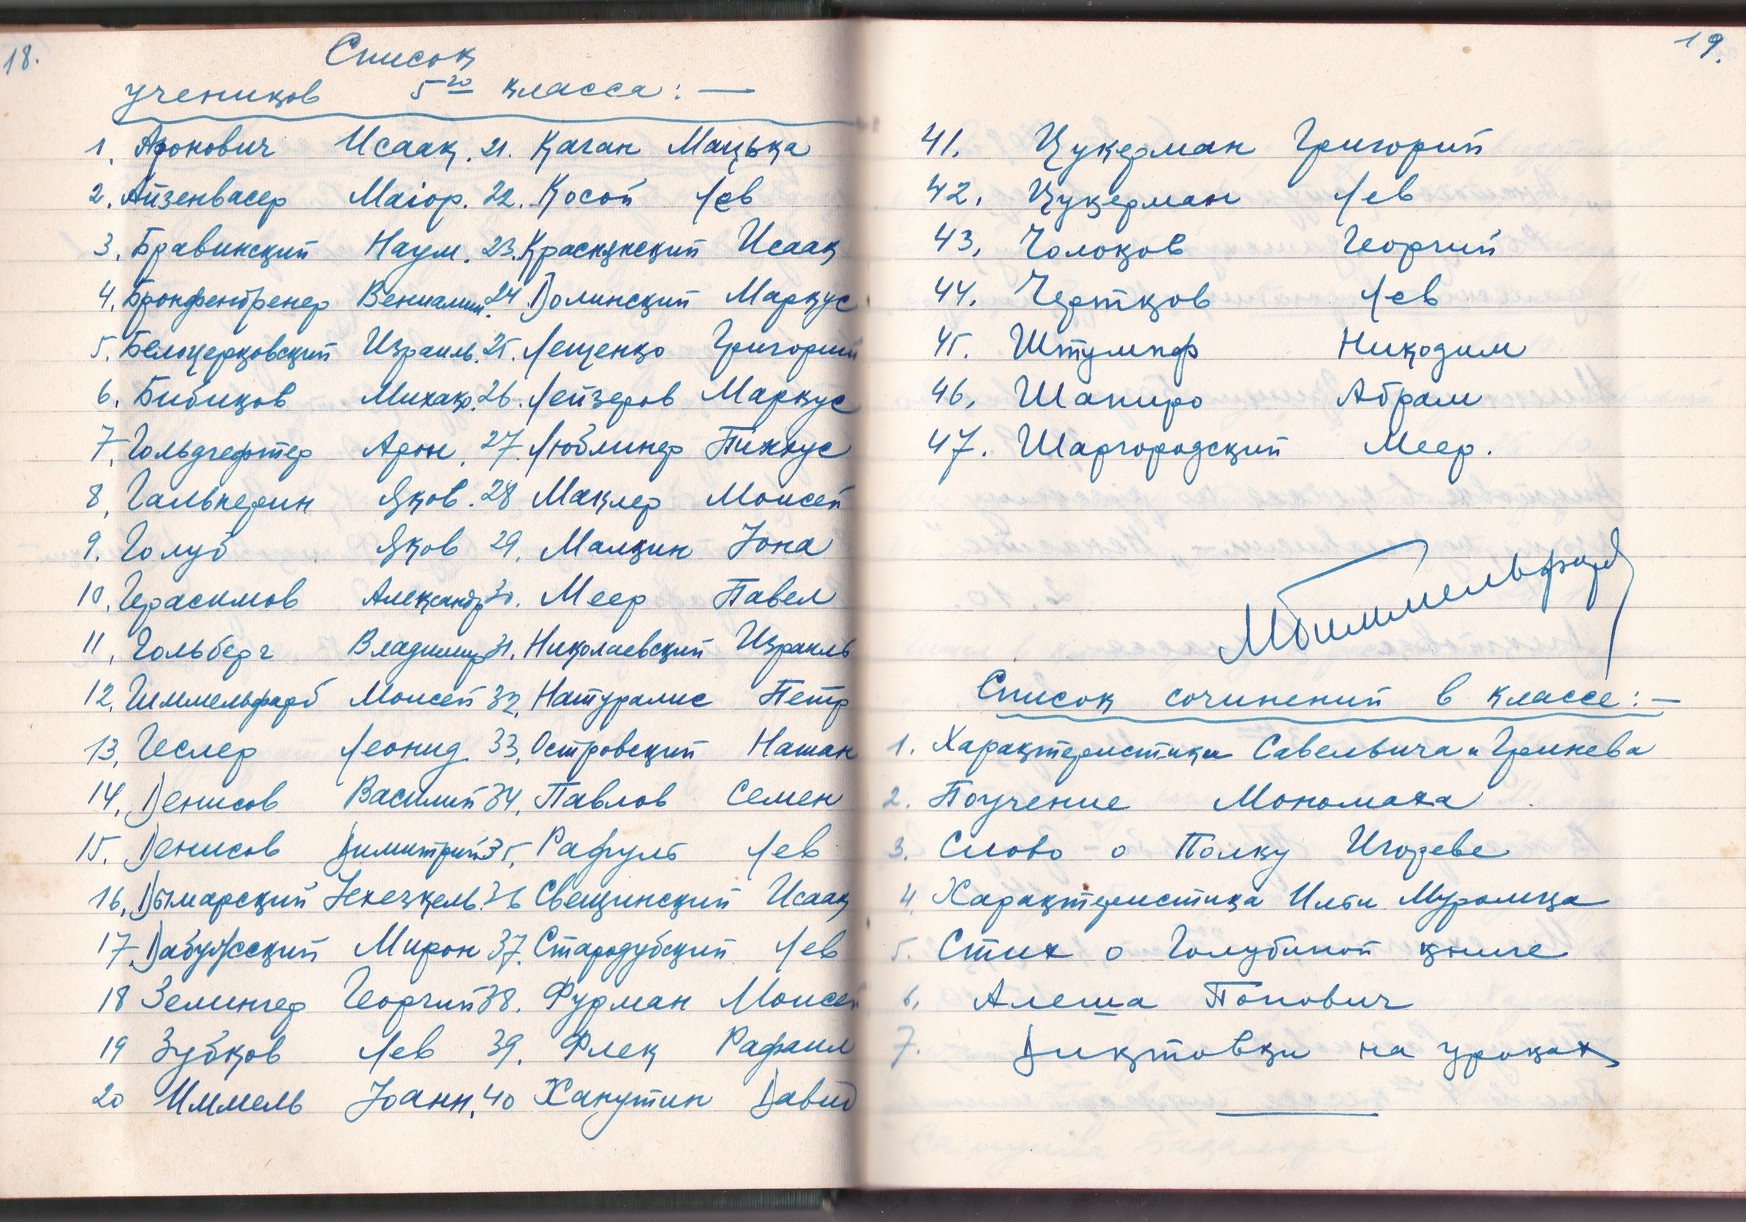 18.
Список
учеников 5го класса: —
1. Аронович Исаак. 21. Каган Мацька
2. Айзенвасер Маіор. 22. Косой Лев
3. Бравинский Наум. 23. Исаак
4. Бронфенбренер Вениамин. 24 Долинский Маркус
5. Белоцерковский Израиль. 25. Лещенко Григорий
6. Бибиков 26. Лейзеров Маркус
7. Гольдгефтер Арон. 27 Люблинер Пинкус
8. Гальперин Яков. 28 Маклер Моисей
9. Голуб Яков 29. Малкин Іона
10. Герасимов Александр 30. Меер Павел
11. Гольберг Владимир 31. Николаевский Израиль
12. Гиммельфарб Моисей 32. Натуралис Петр
13. Геслер Леонид 33. Островский Натан
14. Денисов Василий 34. Павлов Семен
15. Денисов Димитрий 35. Рафуль Лев
16. Дымарский Іехезкель. 36 Свещинский Исаак
17. Мирон 37. Стародубский Лев
18 Зелингер Георгий 38. Фурман Моисей
19 Зубков Лев 39. Флек Рафаил
20 Иммель Іоанн. 40 Ханутин Давид
19.
41. Цукерман Григорий
42. Цукерман Лев
43. Чолоков Георгий
44. Чертков Лев
45. Штумпф Никодим
46. Шапиро Абрам
47. Шаргородский Меер.
МГиммельфарб
Список сочинений в классе: —
1. Характеристики Савельича и Гринева
2. Поучение Мономаха
3. Слово о Полку Игореве
4. Характеристика Ильи Муромца
5. Стих о Голубиной книге
6. Алеша Попович
7. Диктовки на уроках